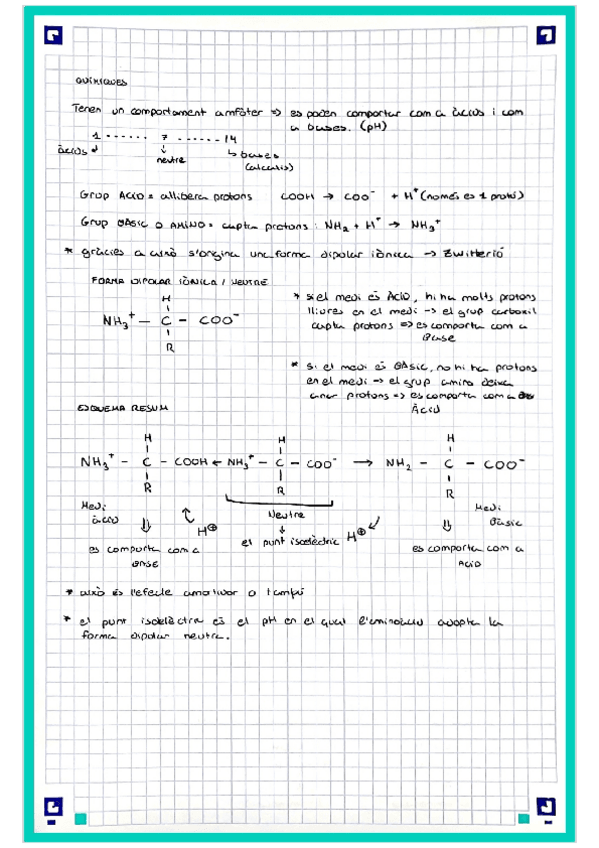 QUÍMIQUES
Tenen un comportament amfòter => es poden comportar com a àcids i com
a bases. (pH)
1 ...... 7 ...... 14
àcids neutre bases
(alcalis)
Grup Àcid = allibera protons COOH → COO⁻ + H⁺ (només es 1 protó)
Grup BÀSIC O AMINO = capta protons : NH₂ + H⁺ → NH₃⁺
* gràcies a això s'origina una forma dipolar iònica → Zwitterió
FORMA DIPOLAR IÒNICA / NEUTRE
H
NH₃⁺ – C – COO⁻
R
* si el medi és Àcid, hi ha molts protons
lliures en el medi → el grup carboxil
capta protons => es comporta com a
Base
* si el medi és BÀSIC, no hi ha protons
en el medi → el grup amino deixa
anar protons => es comporta com a
Àcid
ESQUEMA RESUM
H H H
NH₃⁺ – C – COOH ← NH₃⁺ – C – COO⁻ → NH₂ – C – COO⁻
R R R
Medi àcid
H⊕
es comporta com a
BASE
Neutre
el punt isoelèctric
H⊕
Medi Bàsic
es comporta com a
ÀCID
* això és l'efecte amortidor o tampó
* el punt isoelèctric és el pH en el qual l'aminoàcid adopta la
forma dipolar neutra.